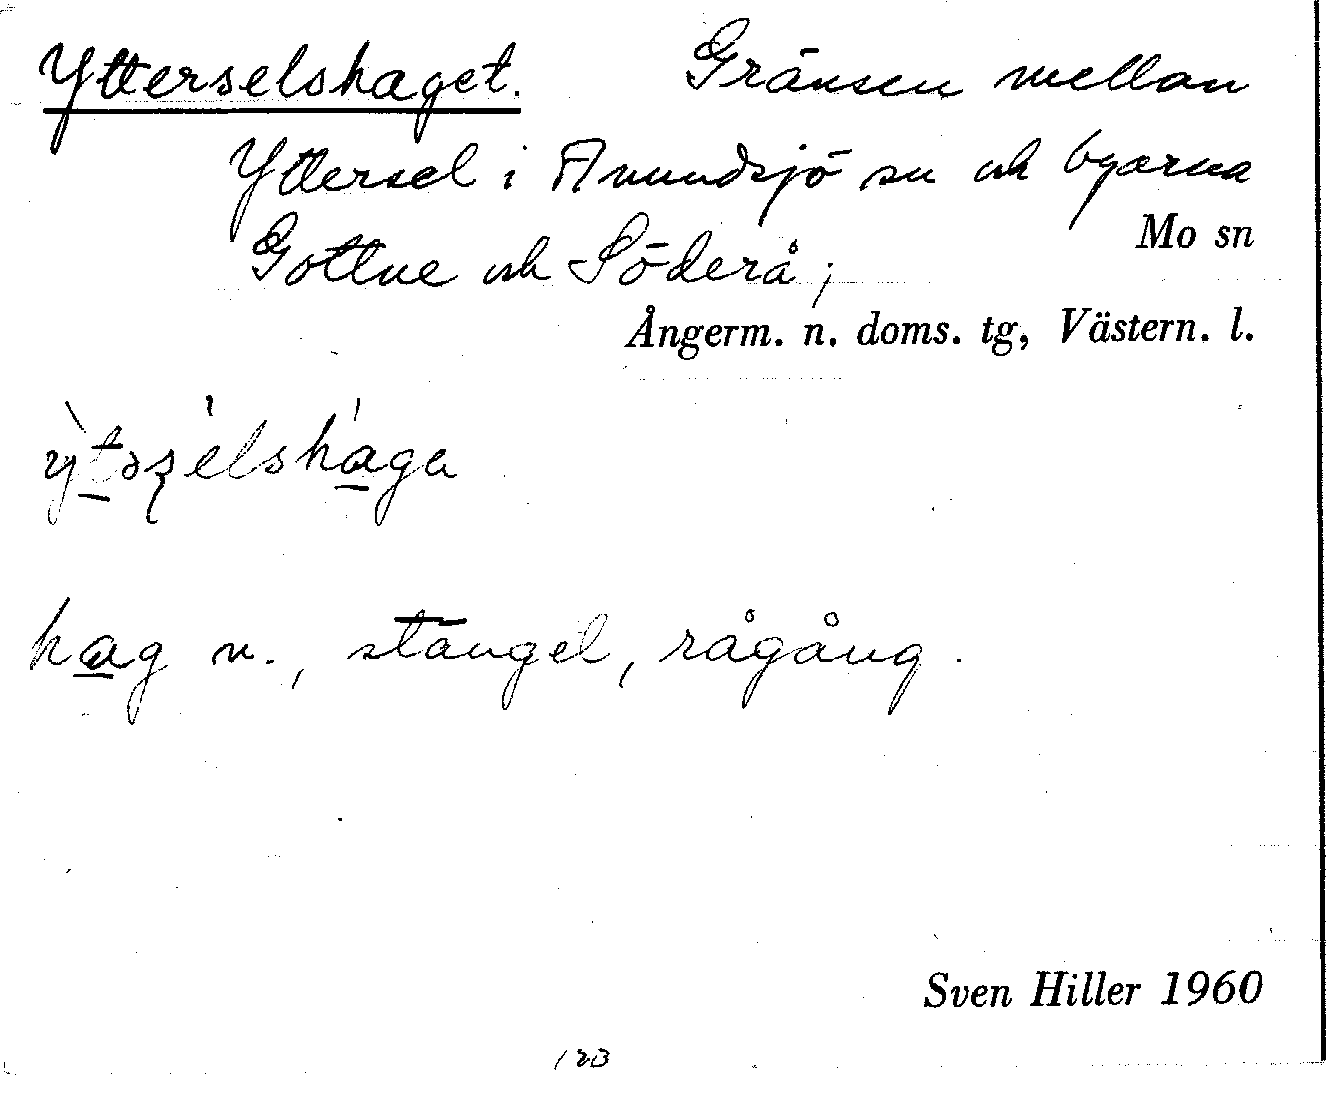 Ytterselshaget. Gränsen mellan
Yttersel i Anundsjö sn och byarna
Mo sn
Gottne och Söderå;
Ångerm. n. doms. tg, Västern. l.
hag n., stängel, rågång.
Sven Hiller 1960
123